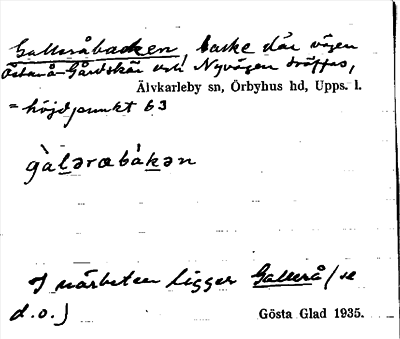 Gallsråbacken, backe där vägen
Östanå-Gårdskär och Nyvägen träffas,
Älvkarleby sn, Örbyhus hd, Upps. l.
= höjdpunkt 63
gàlǝrœbàkǝn
I närheten ligger Gallsrå (se
d.o.)
Gösta Glad 1935.